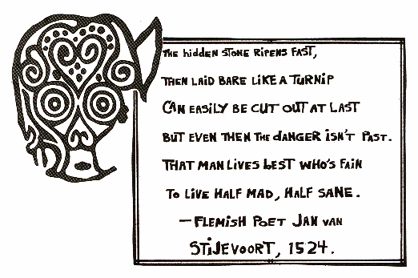 THE hiddEN STONE RIPENS FAST,
THEN LAID BARE LIKE A TURNIP
CAN EASILY BE CUT OUT AT LAST
BUT EVEN THEN THE dANGER ISN'T PAST.
THAT MAN LIVES BEST WHO'S FAIN
TO LIVE HALF MAD, HALF SANE.
— FLEMISH POET JAN VAN
STIJEVOORT, 1524.